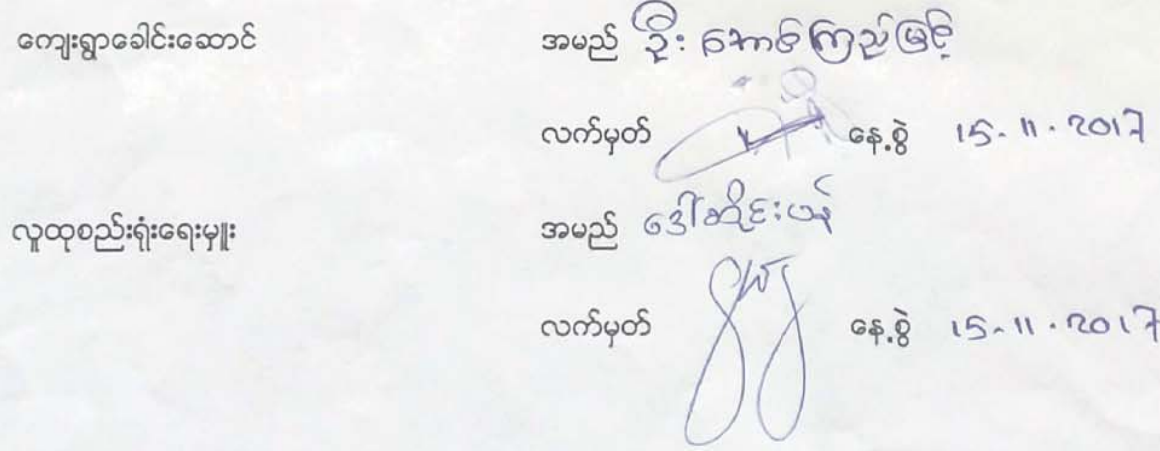 ကျေးရွာခေါင်းဆောင် အမည် ဦး အောင်ကြည်မြင့်
လက်မှတ် နေ့စွဲ 15.11.2017
လူထုစည်းရုံးရေးမှူး အမည် ဒေါ်ဆိုင်းယန်
လက်မှတ် နေ့စွဲ 15.11.2017